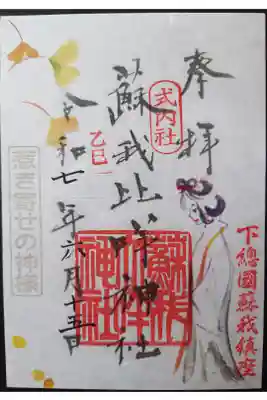 奉拝
式内社
蘇我比咩神社
下總國蘇我鎮座
蘇我比咩神社
乙巳
令和七年六月十五日
惹き寄せの神様